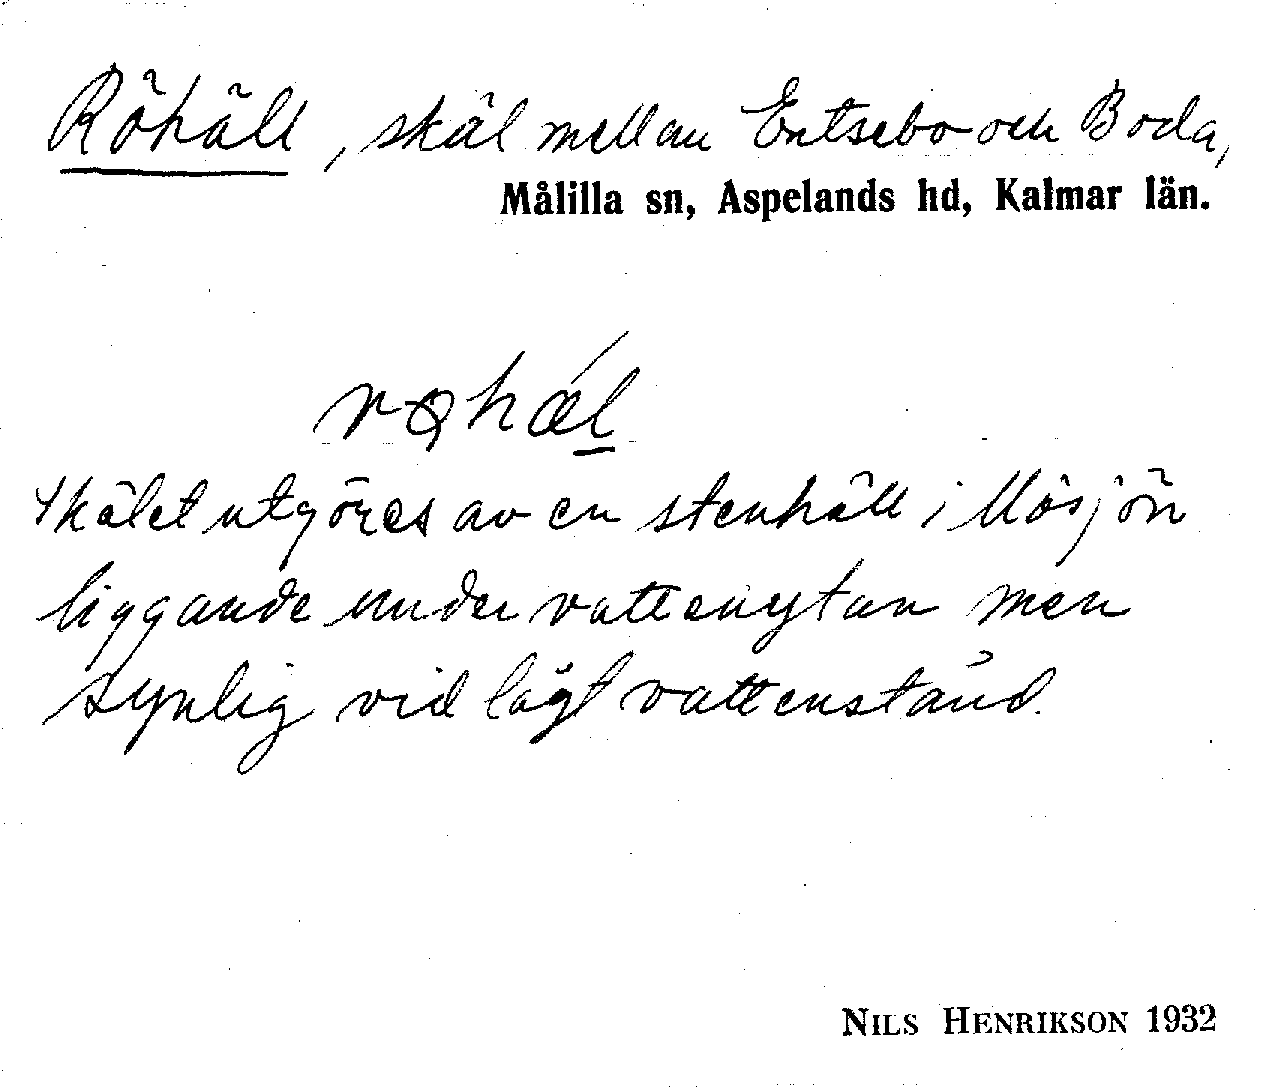 Röhäll, skäl mellan Entsebo och Boda,
Målilla sn, Aspelands hd, Kalmar län.
Skälet utgöres av en stenhäll i Mösjön
liggande under vattenytan men
synlig vid lågt vattenstånd.
NILS HENRIKSON 1932